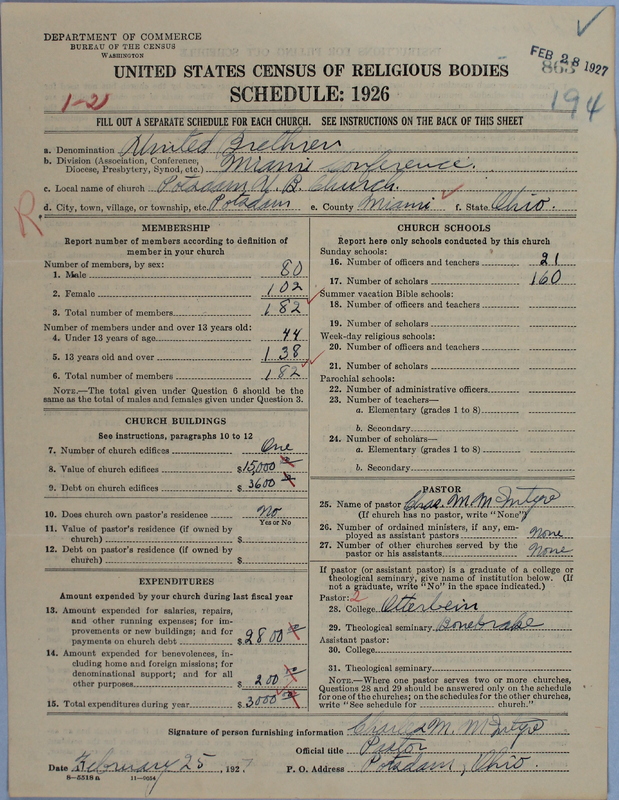 DEPARTMENT OF COMMERCE
BUREAU OF THE CENSUS
WASHINGTON
FEB 28 1927
194
UNITED STATES CENSUS OF RELIGIOUS BODIES
SCHEDULE: 1926
1-21
FILL OUT A SEPARATE SCHEDULE FOR EACH CHURCH. SEE INSTRUCTIONS ON THE BACK OF THIS SHEET
a. Denomination United Brethren
b. Division (Association, Conference, Diocese, Presbytery, Synod, etc.) Miami Conference.
c. Local name of church Potsdam U. B. Church.
d. City, town, village, or township, etc. Potsdam e. County Miami f. State Ohio.
R
MEMBERSHIP
Report number of members according to definition of
member in your church
Number of members, by sex:
1. Male 80
2. Female 102
3. Total number of members 182
Number of members under and over 13 years old:
4. Under 13 years of age 44
5. 13 years old and over 138
6. Total number of members 182
NOTE.—The total given under Question 6 should be
same as the total of males and females given under Question 3.
CHURCH BUILDINGS
See instructions, paragraphs 10 to 12
7. Number of church edifices One
8. Value of church edifices $15,000
9. Debt on church edifices $3600
10. Does church own pastor's residence No.
Yes or No
11. Value of pastor's residence (if owned by
church) $
12. Debt on pastor's residence (if owned by
church) $
EXPENDITURES
Amount expended by your church during last fiscal year
13. Amount expended for salaries, repairs,
and other running expenses; for im-
provements or new buildings; and for
payments on church debt $2800
14. Amount expended for benevolences, in-
cluding home and foreign missions; for
denominational support; and for all
other purposes $200
15. Total expenditures during year $3000
CHURCH SCHOOLS
Report here only schools conducted by this church
Sunday schools:
16. Number of officers and teachers 21
17. Number of scholars 160
Summer vacation Bible schools:
18. Number of officers and teachers
19. Number of scholars
Week-day religious schools:
20. Number of officers and teachers
21. Number of scholars
Parochial schools:
22. Number of administrative officers
23. Number of teachers—
a. Elementary (grades 1 to 8)
b. Secondary
24. Number of scholars—
a. Elementary (grades 1 to 8)
b. Secondary
PASTOR
25. Name of pastor Chas. M. McIntyre
(If church has no pastor, write "None")
26. Number of ordained ministers, if any, em-
ployed as assistant pastors None
27. Number of other churches served by the
pastor or his assistants None
If pastor (or assistant pastor) is a graduate of a college or
theological seminary, give name of institution below. (If
not a graduate, write "No" in the space indicated.)
Pastor: 2
28. College Otterbein
29. Theological seminary Bonebrake
Assistant pastor:
30. College
31. Theological seminary
NOTE.—Where one pastor serves two or more churches,
Questions 28 and 29 should be answered only on the schedule
for one of the churches; on the schedules for the other churches,
write "See schedule for church."
Signature of person furnishing information Charles M. McIntyre
Official title Pastor
Date February 25, 1927 P. O. Address Potsdam, Ohio.
8—5518a 11—9034